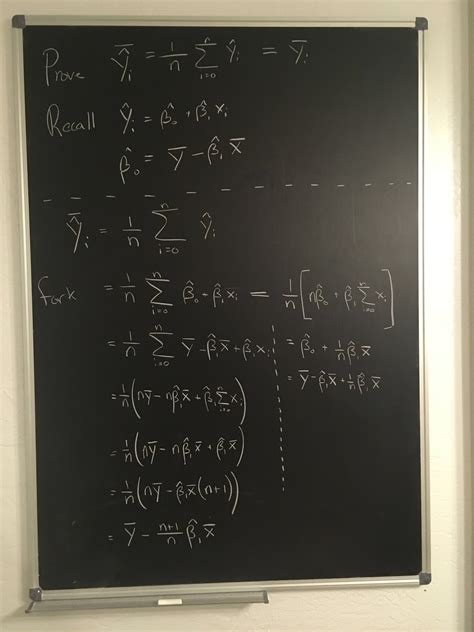 Prove \overline{\hat{y}}_i = \frac{1}{n} \sum_{i=0}^{n} \hat{y}_i = \overline{y}_i
Recall \hat{y}_i = \hat{β}_0 + \hat{β}_1 x_i
\hat{β}_0 = \overline{y} - \hat{β}_1 \overline{x}
\overline{\hat{y}}_i = \frac{1}{n} \sum_{i=0}^{n} \hat{y}_i
fork = \frac{1}{n} \sum_{i=0}^{n} \hat{β}_0 + \hat{β}_1 x_i = \frac{1}{n} [ n\hat{β}_0 + \hat{β}_1 \sum_{i=0}^{n} x_i ]
= \frac{1}{n} \sum_{i=0}^{n} \overline{y} - \hat{β}_1 \overline{x} + \hat{β}_1 x_i
= \frac{1}{n} ( n\overline{y} - n\hat{β}_1 \overline{x} + \hat{β}_1 \sum_{i=0}^{n} x_i )
= \frac{1}{n} ( n\overline{y} - n\hat{β}_1 \overline{x} + \hat{β}_1 \overline{x} )
= \frac{1}{n} ( n\overline{y} - \hat{β}_1 \overline{x} (n+1) )
= \overline{y} - \frac{n+1}{n} \hat{β}_1 \overline{x}
= \hat{β}_0 + \frac{1}{n} \hat{β}_1 \overline{x}
= \overline{y} - \hat{β}_1 \overline{x} + \frac{1}{n} \hat{β}_1 \overline{x}